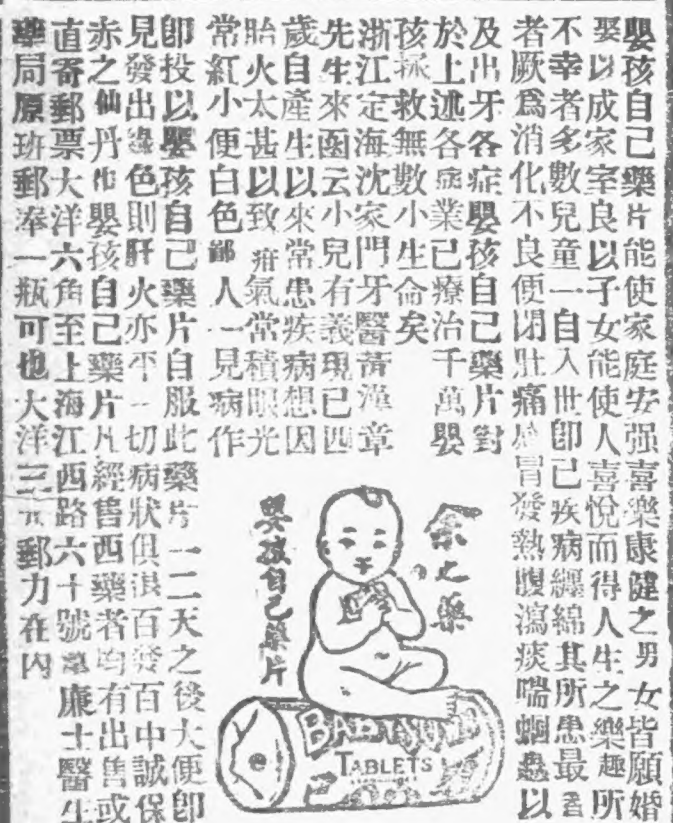 嬰孩自己藥片能使家庭安强喜樂康健之男女皆願婚
娶以成家室良以子女能使人喜悅而得人生之樂趣所
不幸者多數兒童一自入世即已疾病纏綿其所患最
者厥爲消化不良便閉肚痛冒發熱腹瀉痰喘蛔蟲以
及出牙各症嬰孩自己藥片對
於上述各症業已療治千萬嬰
孩拯救無數小生命矣
浙江定海沈家門牙醫黃漢章
先生來函云小兒有義現已四
歲自產生以來常患疾病想因
胎火太甚以致疳氣常積眼光
常紅小便白色鄙人一見病作
即投以嬰孩自己藥片自服此藥片一二天之後大便即
見發出綠色則肝火亦平一切病狀俱退百發百中誠保
赤之仙丹也嬰孩自己藥片凡經售西藥者均有出售或
直寄郵票大洋六角至上海江西路六十號韋廉士醫生
藥局原班郵奉一瓶可也大洋三元郵力在內
余之藥
嬰孩自己藥片
BABY'S OWN
TABLETS